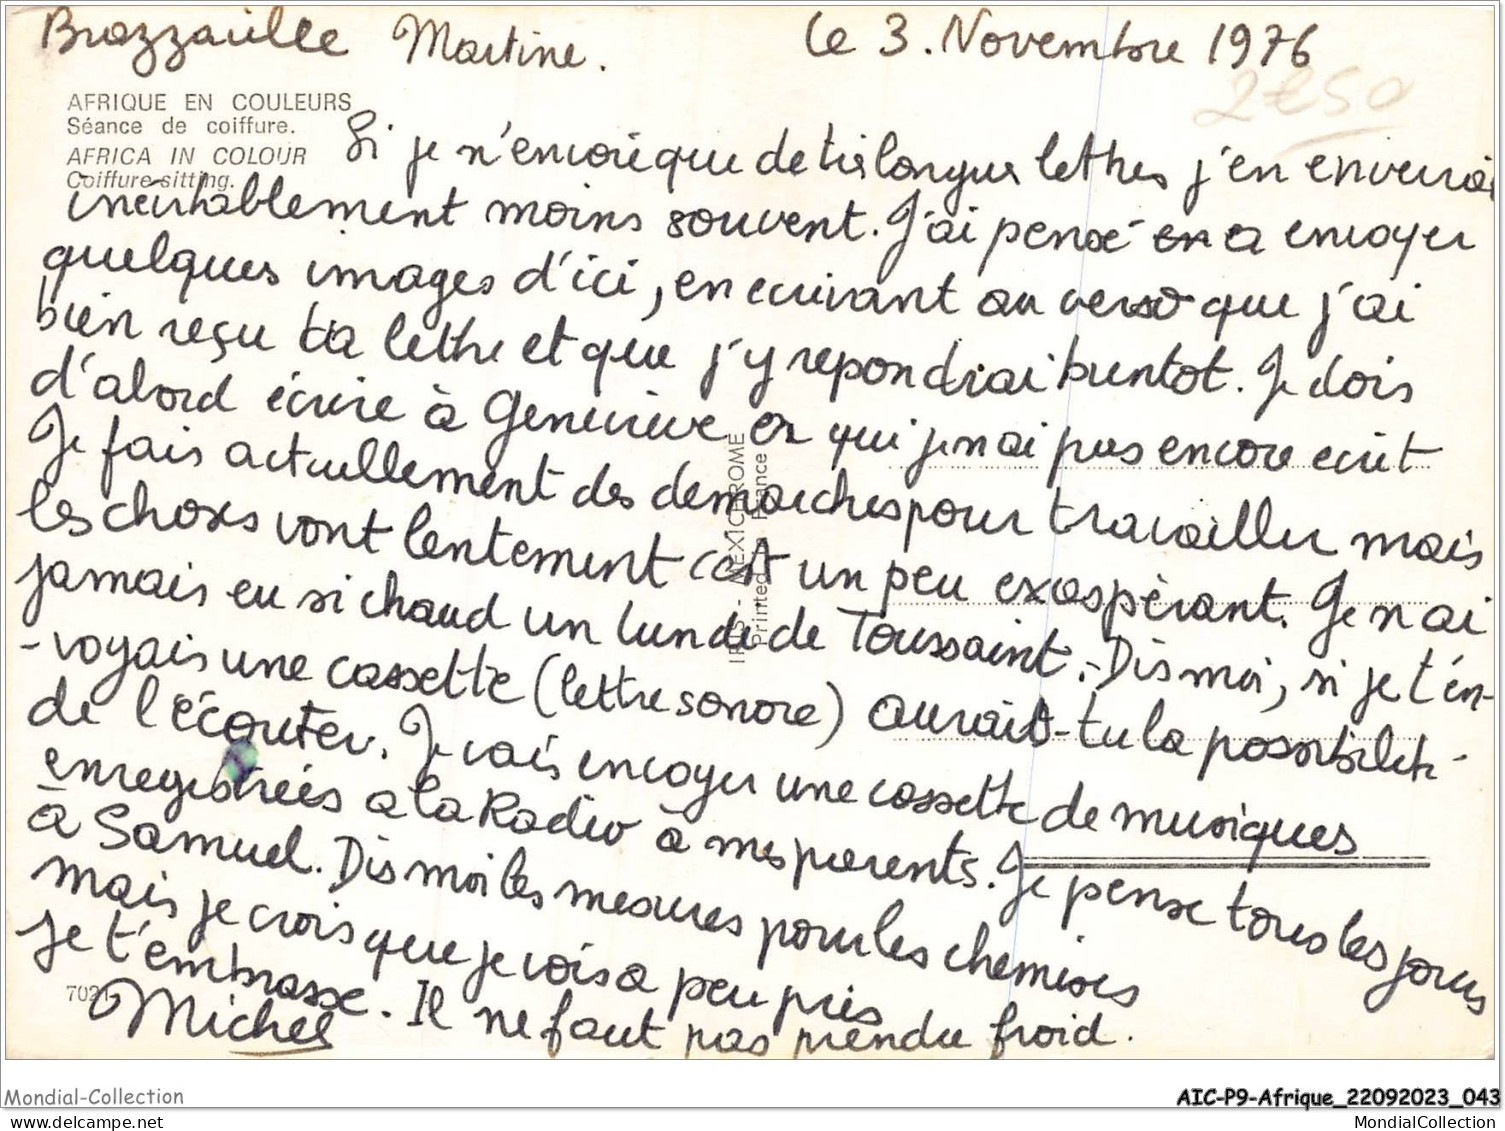 Brazzaville Martine. le 3. Novembre 1976
2€50
AFRIQUE EN COULEURS
Séance de coiffure.
AFRICA IN COLOUR
Coiffure-sitting.
Si je n'envoie que de très longues lettres j'en enverrai
inévitablement moins souvent. J'ai pensé à envoyer
quelques images d'ici, en ecrivant au verso que j'ai
bien reçu ta lettre et que j'y repondrai bientot. Je dois
d'abord écrire à Geneviève à qui je n'ai pas encore ecrit
Je fais actuellement des demarches pour travailler mais
les choses vont lentement c'est un peu exaspérant. Je n'ai
jamais eu si chaud un lundi de Toussaint. - Dis moi, si je t'en-
-voyais une cassette (lettre sonore) aurais-tu la possibilité
de l'écouter. Je vais envoyer une cassette de musiques
enregistrées a la Radio à mes parents. Je pense tous les jours
à Samuel. Dis moi les mesures pour les chemises
mais je crois que je vois a peu près
je t'embrasse. Il ne faut pas prendre froid.
Michel
7021
IRIS - MEXICHROME
Printed in France
Mondial-Collection
AIC-P9-Afrique_22092023_043
delcampe.net
MondialCollection